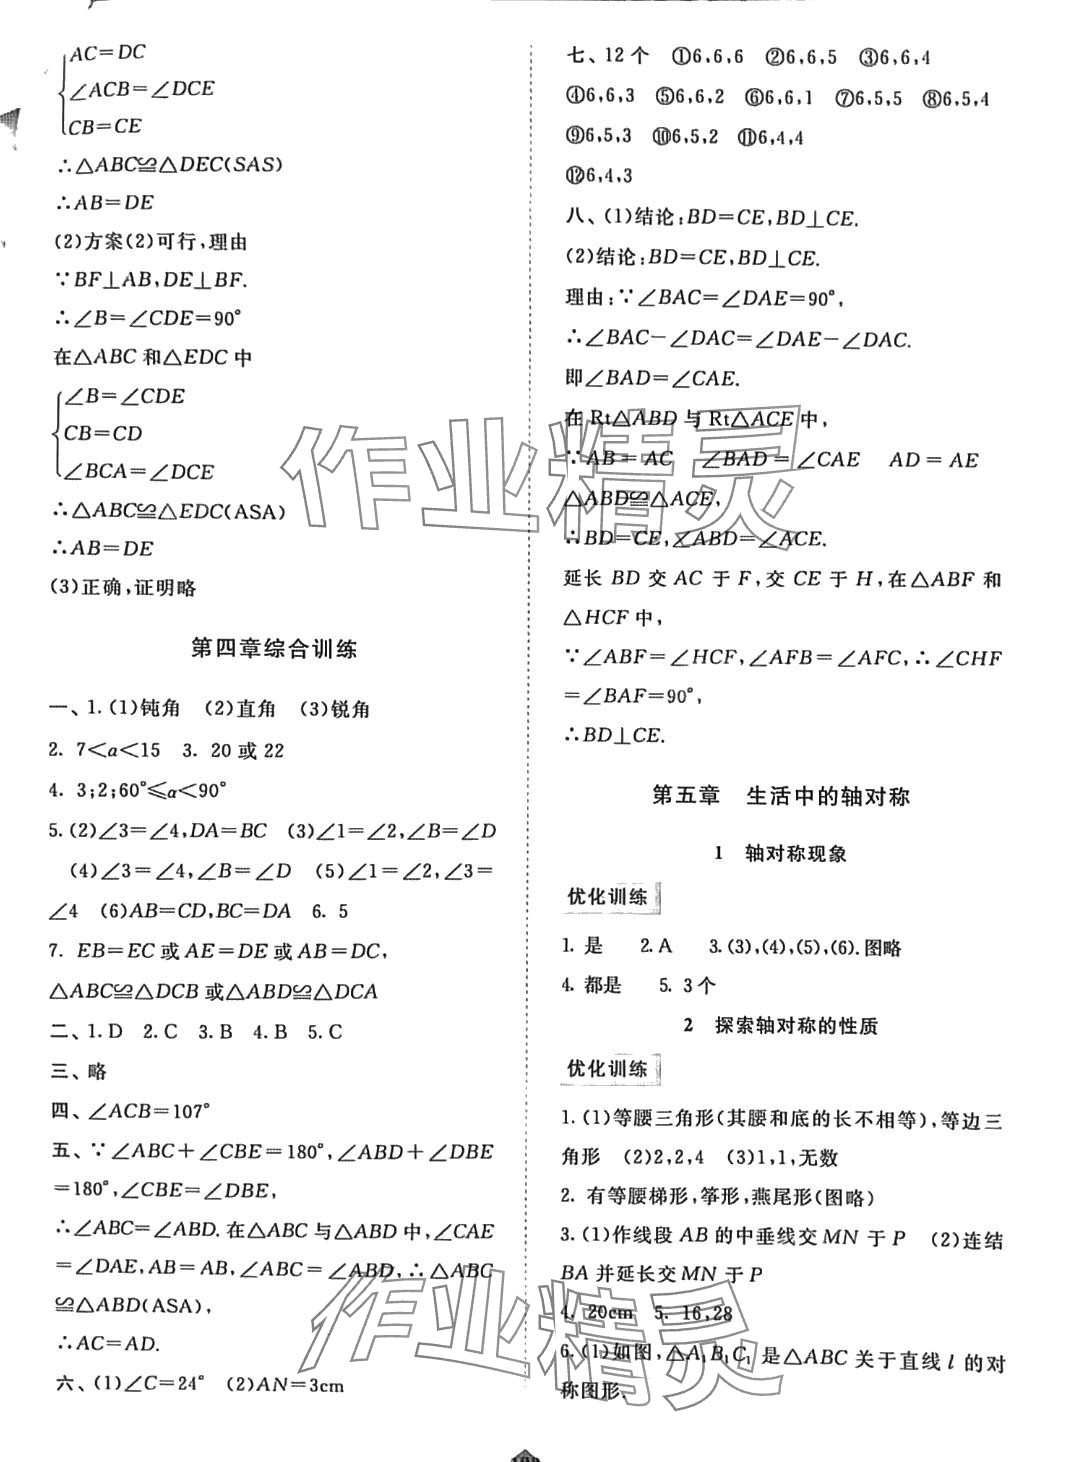 AC=DC
∠ACB=∠DCE
CB=CE
∴△ABC≌△DEC(SAS)
∴AB=DE
(2)方案(2)可行,理由
∵BF⊥AB,DE⊥BF.
∴∠B=∠CDE=90°
在△ABC和△EDC中
∠B=∠CDE
CB=CD
∠BCA=∠DCE
∴△ABC≌△EDC(ASA)
∴AB=DE
(3)正确,证明略
第四章综合训练
一、1.(1)钝角 (2)直角 (3)锐角
2. 7<a<15 3. 20或22
4. 3;2;60°≤α<90°
5.(2)∠3=∠4,DA=BC (3)∠1=∠2,∠B=∠D
(4)∠3=∠4,∠B=∠D (5)∠1=∠2,∠3=
∠4 (6)AB=CD,BC=DA 6. 5
7. EB=EC或AE=DE或AB=DC,
△ABC≌△DCB或△ABD≌△DCA
二、1.D 2.C 3.B 4.B 5.C
三、略
四、∠ACB=107°
五、∵∠ABC+∠CBE=180°,∠ABD+∠DBE
=180°,∠CBE=∠DBE,
∴∠ABC=∠ABD.在△ABC与△ABD中,∠CAE
=∠DAE,AB=AB,∠ABC=∠ABD,∴△ABC
≌△ABD(ASA),
∴AC=AD.
六、(1)∠C=24° (2)AN=3cm
七、12个 ①6,6,6 ②6,6,5 ③6,6,4
④6,6,3 ⑤6,6,2 ⑥6,6,1 ⑦6,5,5 ⑧6,5,4
⑨6,5,3 ⑩6,5,2 ⑪6,4,4
⑫6,4,3
八、(1)结论:BD=CE,BD⊥CE.
(2)结论:BD=CE,BD⊥CE.
理由:∵∠BAC=∠DAE=90°,
∴∠BAC-∠DAC=∠DAE-∠DAC.
即∠BAD=∠CAE.
在Rt△ABD与Rt△ACE中,
∵AB=AC ∠BAD=∠CAE AD=AE
△ABD≌△ACE,
∴BD=CE,∠ABD=∠ACE.
延长BD交AC于F,交CE于H,在△ABF和
△HCF中,
∵∠ABF=∠HCF,∠AFB=∠AFC,∴∠CHF
=∠BAF=90°,
∴BD⊥CE.
第五章 生活中的轴对称
1 轴对称现象
优化训练
1. 是 2.A 3.(3),(4),(5),(6).图略
4. 都是 5. 3个
2 探索轴对称的性质
优化训练
1.(1)等腰三角形(其腰和底的长不相等),等边三
角形 (2)2,2,4 (3)1,1,无数
2. 有等腰梯形,筝形,燕尾形(图略)
3.(1)作线段AB的中垂线交MN于P (2)连结
BA并延长交MN于P
4. 20cm 5. 16,28
6.(1)如图,△A₁B₁C₁是△ABC关于直线l的对
称图形.
作业精灵
作业精灵